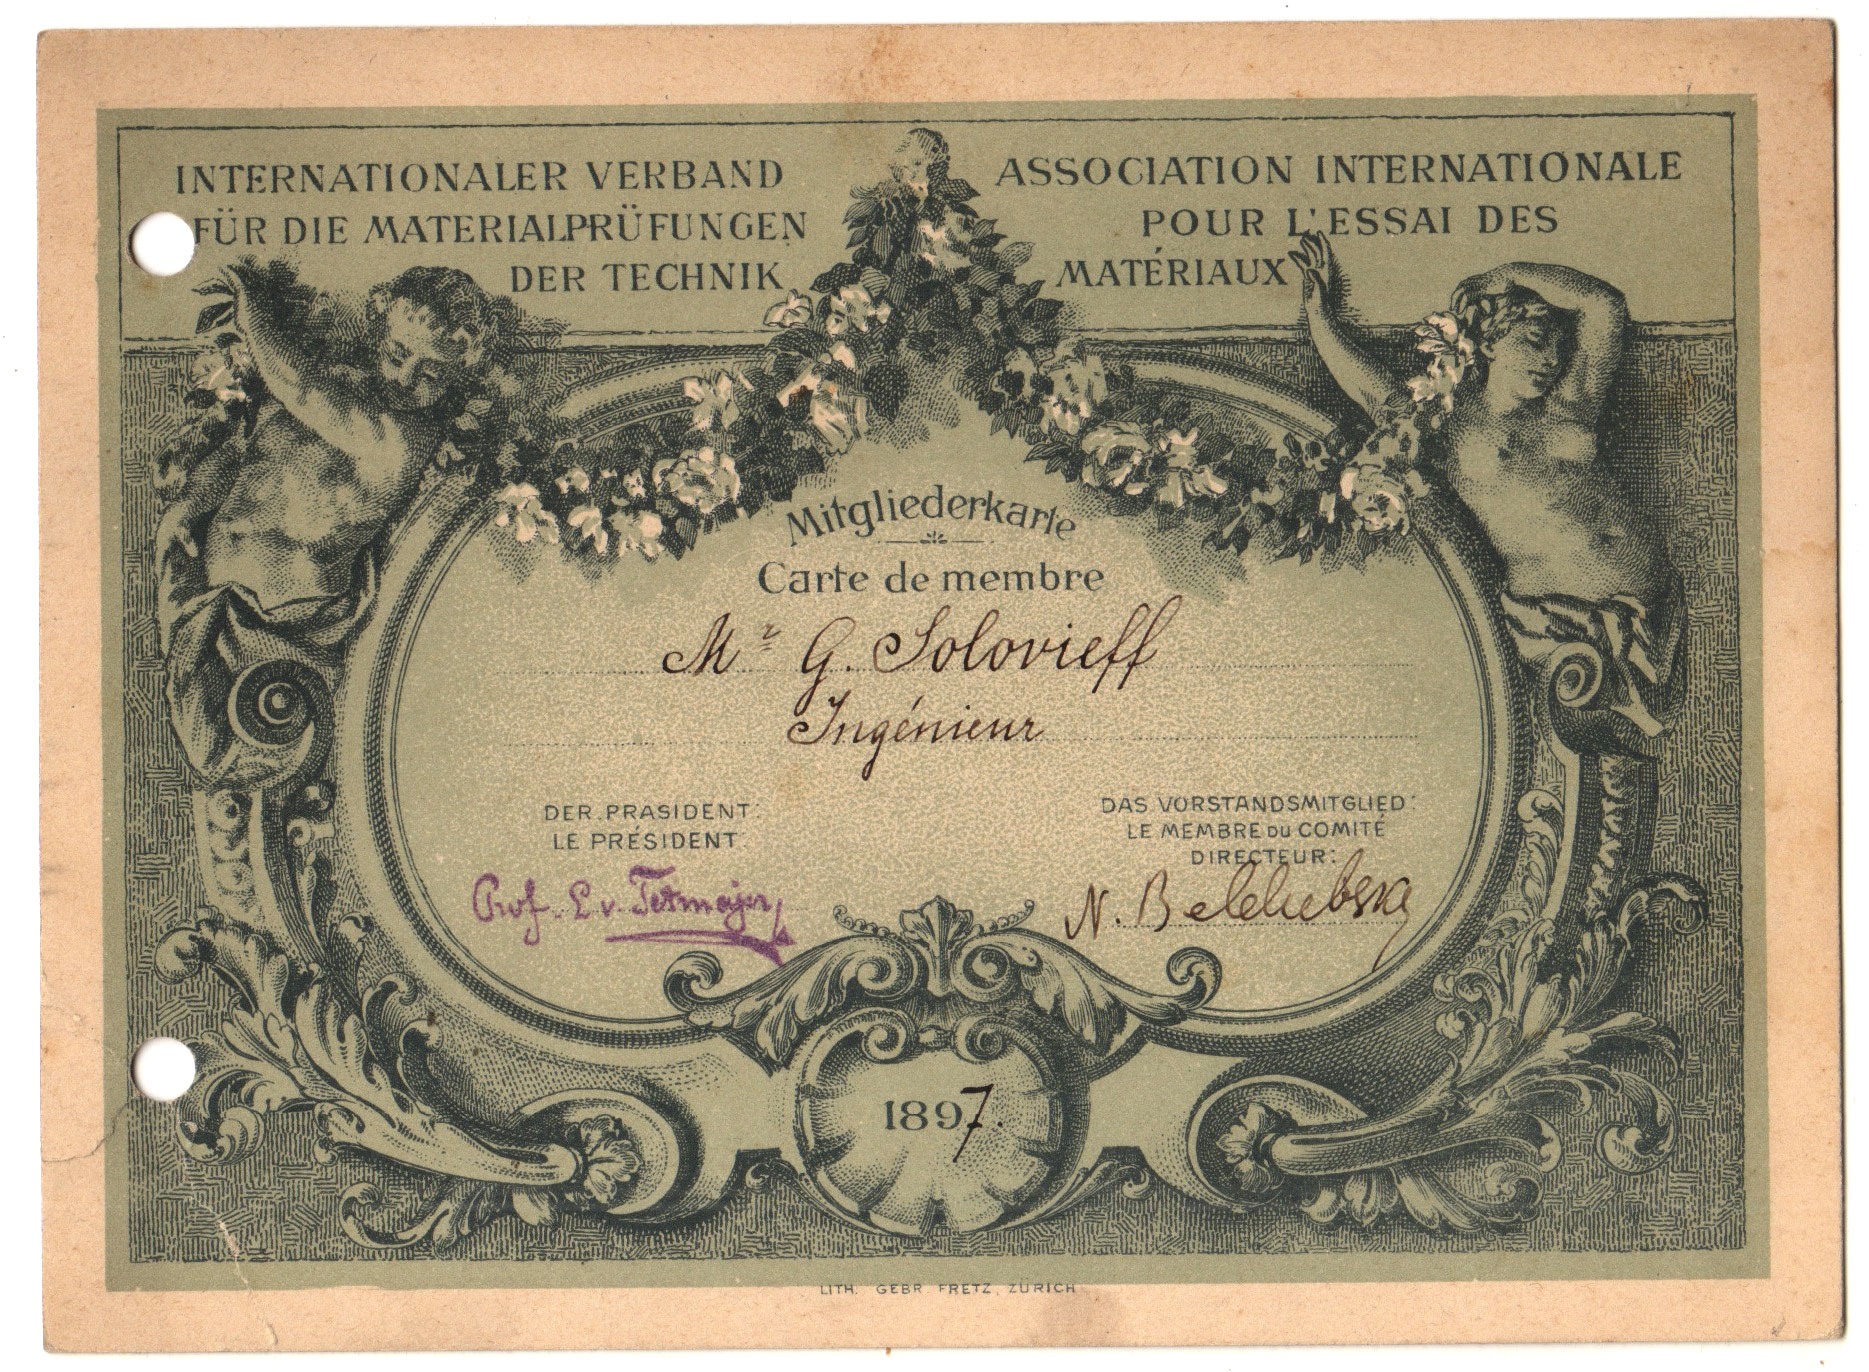 INTERNATIONALER VERBAND
FÜR DIE MATERIALPRÜFUNGEN
DER TECHNIK
ASSOCIATION INTERNATIONALE
POUR L'ESSAI DES
MATÉRIAUX
Mitgliederkarte
Carte de membre
Mr G. Solovieff
Ingénieur
DER PRASIDENT:
LE PRÉSIDENT:
Prof. L v. Tetmajer
DAS VORSTANDSMITGLIED:
LE MEMBRE DU COMITÉ
DIRECTEUR:
N. Belelubsky
1897.
LITH. GEBR. FRETZ, ZÜRICH